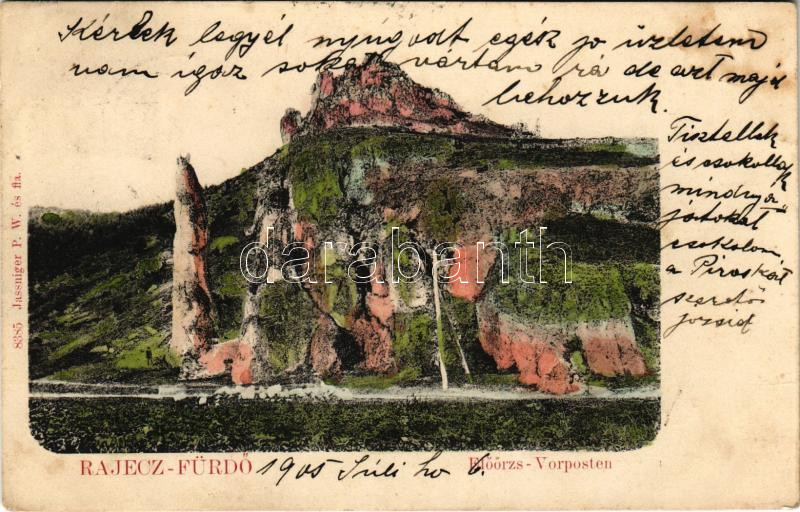 Kérlek legyél nyugodt egész jo üzletem
vam igaz sokat vártam rá de azt majd
behozzuk.
Tisztellek
és csokollak
mindnya-
jótokat
csokolom
a Piroskát
szerető
józsid
8385 Jassniger P. W. és fia.
darabanth
RAJECZ-FÜRDŐ
1905 Júli ho 6.
Előőrzs - Vorposten